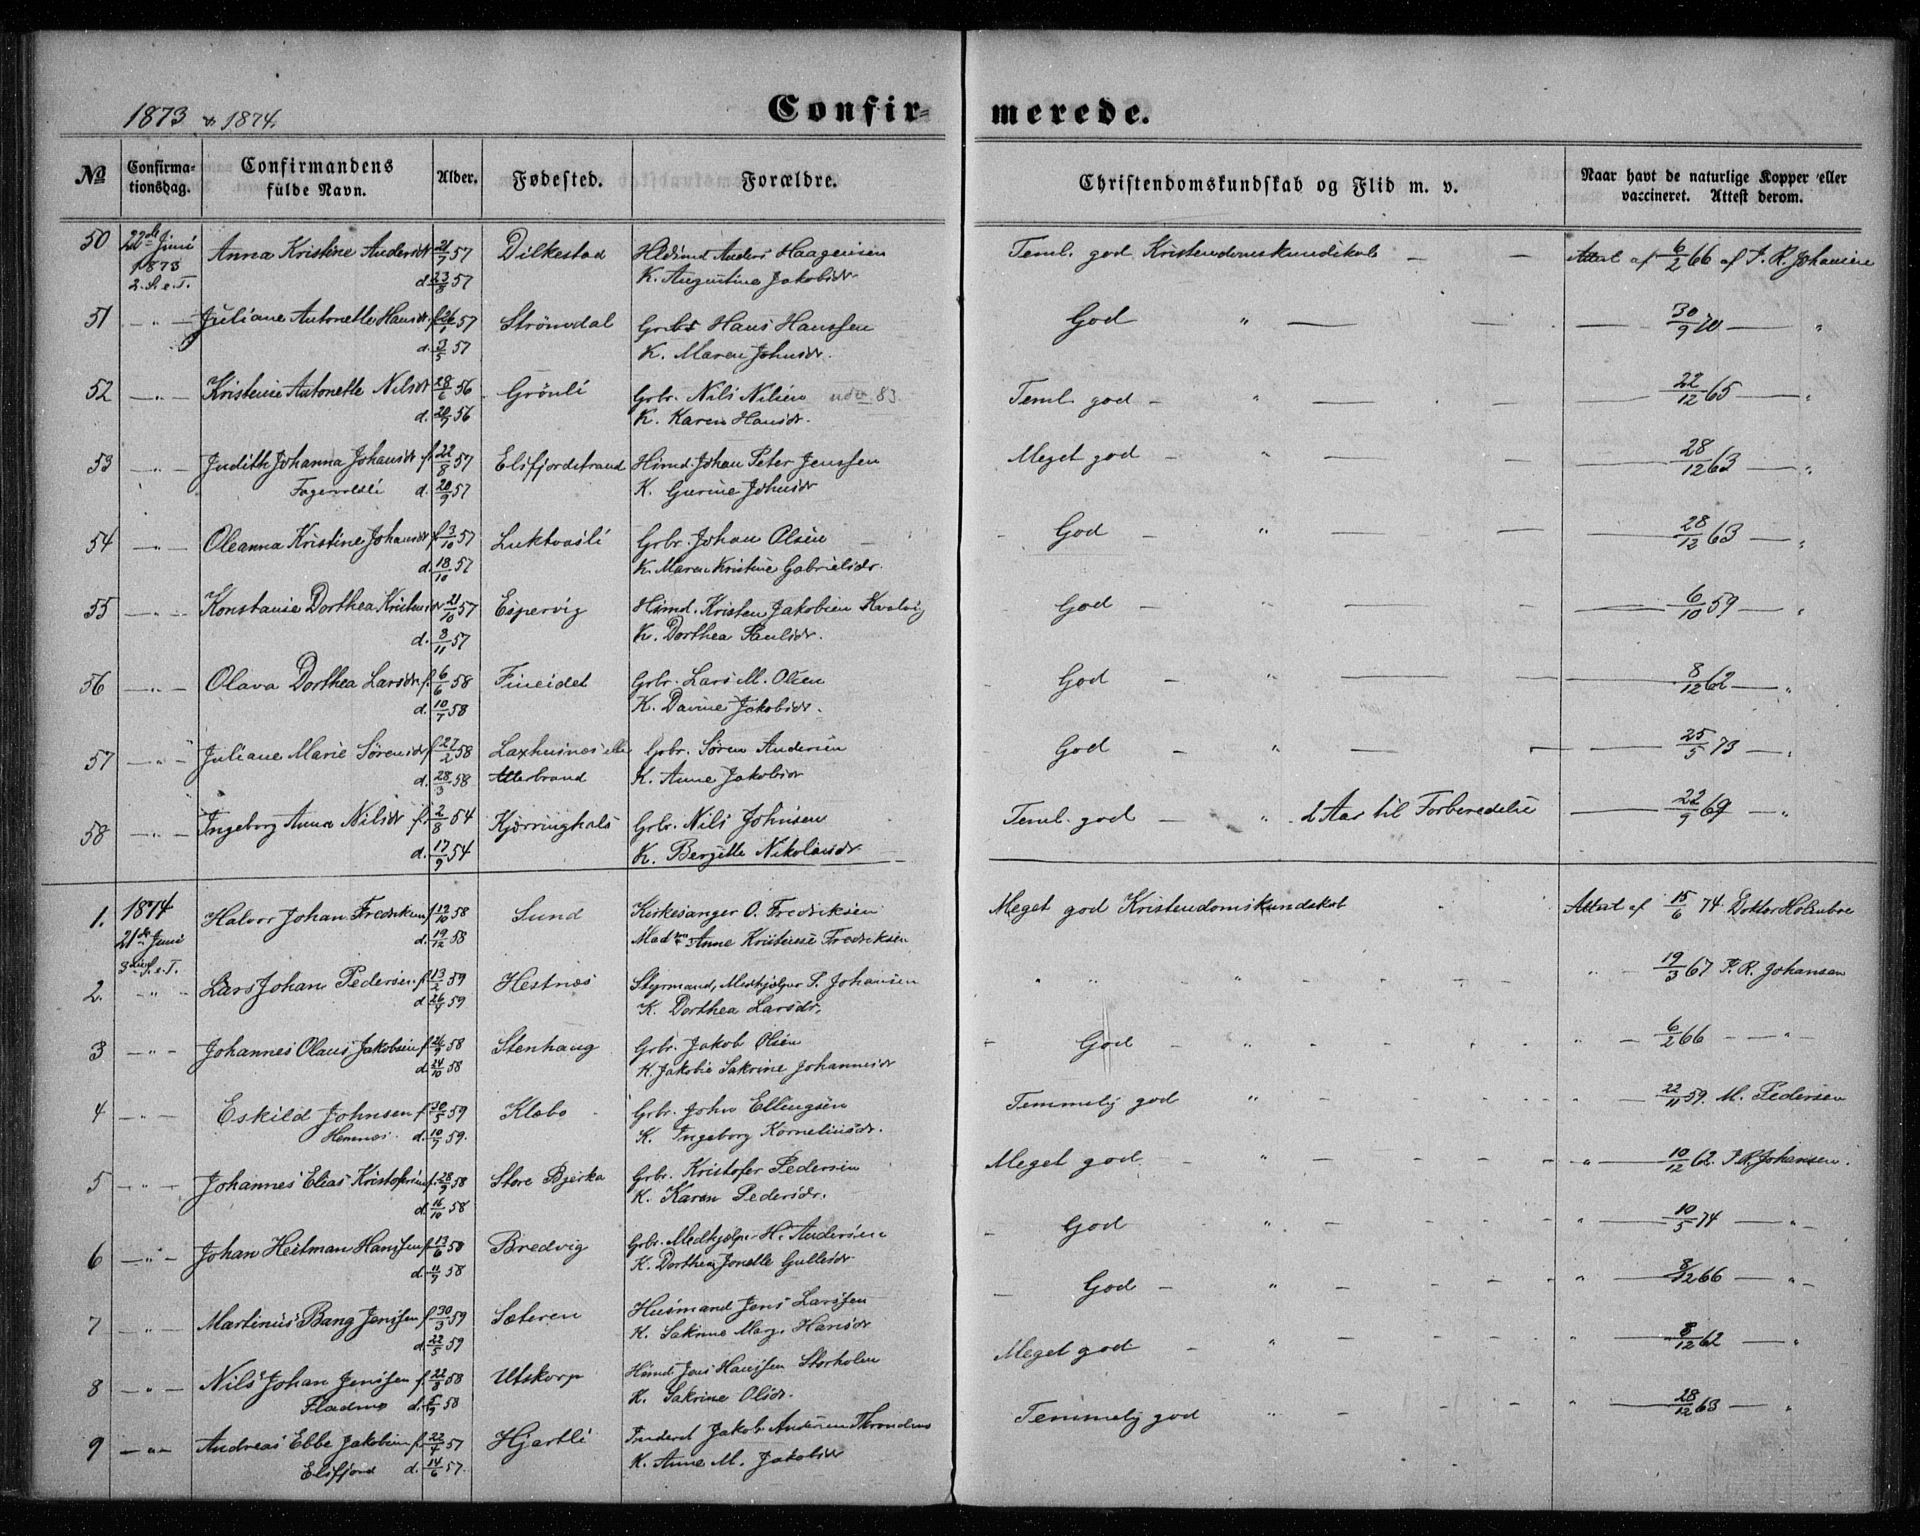 1873 & 1874.
Confirmerede.
No
Confirmationsdag.
Confirmandens fulde Navn.
Alder.
Fødested.
Forældre.
Christendomskundskab og Flid m. v.
Naar havt de naturlige Kopper eller vaccineret. Attest derom.
50 22de Juni Anna Kristine Andersdr 21/7 57 Dilkestad Anders Haagensen Teml. god Kristendomskundskab — — Attest af 6/2 66 af P. R. Johansen
1873 2. S. e. T. d. 23/8 57 K. Augustine Jakobsdr
51 — " — Juliane Antonette Hansdr f. 26/1 57 Strømdal Grbr Hans Hanssen God " — — — — 30/9 70 — "
d. 3/5 57 K. Maren Johnsdr.
52 — " — Kristense Antonette Nilsdr 28/6 56 Grønli Grbr. Nils Nilsen 83 Teml. god — " — — 22/12 65 — "
d. 20/9 56 K. Karen Hansdr.
53 — " — Judith Johanna Johansdr f. 22/8 57 Elsfjordstrand Hsmd. Johan Peter Jenssen Meget god — " — — 28/12 63 — "
Fagervoldli d. 20/9 57 K. Gurine Johnsdr
54 — " — Oleanna Kristine Johansdr f. 3/10 57 Luktvasli Grbr. Johan Olsen God " — 28/12 63 — "
d. 18/10 57 K. Maren Kristine Gabrielsdr.
55 — " — Konstanse Dorthea Kristensdr 21/10 57 Espervig Hsmd. Kristen Jakobsen Kvalvig God — " — — — 6/10 59 — "
d. 8/11 57 K. Dorthea Paulsdr.
56 — " — Olava Dorthea Larsdr f. 6/6 58 Fineidet Grbr. Lars M. Olsen God — " — — 8/12 62 — "
d. 10/7 58 K. Davine Jakobsdr.
57 — " — Juliane Marie Sørensdr f. 27/2 58 Laxhusnes Grbr. Søren Andersen God — " — — — 25/5 73 — "
d. 28/3 58 Atterbrand K. Anne Jakobsdr
58 — " — Ingeborg Anna Nilsdr f. 2/8 54 Kjærringhals Grbr. Nils Johnsen Teml. god — " 2 Aar til Forberedelse — 22/9 69 — "
d. 17/9 54 K. Bergitte Nikolaisdr
1. 1874 Halvor Johan Fredriksen f. 19/10 58 Sund Kirkesanger O. Fredriksen Meget god Kristendomskundskab Attest af 15/6 74 Doktor Holmboe
21de Juni d. 19/12 58 Madme Anne Kristense Fredriksen
3die S. e. T.
2. " — Lars Johan Pedersen f. 13/2 59 Hestnes Styrmand, Medhjælper P. Johansen " " " — 19/3 67 P. R. Johansen
d. 26/4 59 K. Dorthea Larsdr.
3 — " — Johannes Olaus Jakobsen f. 26/9 58 Stenhaug Grbr. Jakob Olsen God — " — — " — 6/2 66 — " —
d. 24/10 58 K. Jakobie Sakrine Johannesdr
4 — " — Eskild Johnsen f. 30/5 59 Klebo Grbr. John Ellingsen Temmelig god " — — " — 22/11 59. M. Pedersen
Hemnes. d. 10/7 59. K. Ingeborg Korneliusdr.
5 — " — Johannes Elias Kristofersen f. 28/9 58 Store Bjerka Grbr. Kristofer Pedersen Meget god — " — — " — 10/12 62. P. R. Johansen.
d. 16/10 58 K. Karen Pedersdr.
6 — " — Johan Heitman Hanssen f. 13/6 58 Bredvig Grbr. Medhjelper H. Andersen God " — — " — 10/5 74 — " —
d. 11/7 58 K. Dorthea Jonette Gullesdr
7 — " — Martinus Bang Jenssen f. 30/3 59 Sæteren Husmand Jens Larssen God " — — " — 8/12 66 — " —
d. 22/5 59 K. Sakrine Marg. Hansdr
8 — " — Nils Johan Jenssen f. 22/8 58 Utskarp Hsmd. Jens Hanssen Storholm Meget god — " — — " — 8/12 62 — "
Fladmo d. 5/9 58 K. Sakrine Olsdr.
9 — " — Andreas Ebbe Jakobsen f. 22/4 57 Hjartli Inderst Jakob Andersen Temmelig god " — — " — 28/12 63 — "
Elsfjord d. 14/6 57. K. Anne M. Jakobsdr